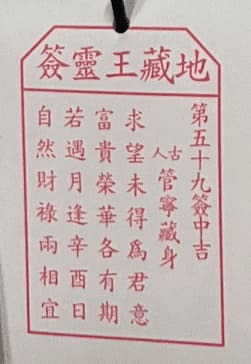 地藏王靈簽
第五十九簽中吉
古人管寧藏身
求望未得爲君意
富貴榮華各有期
若遇月逢辛酉日
自然財祿兩相宜